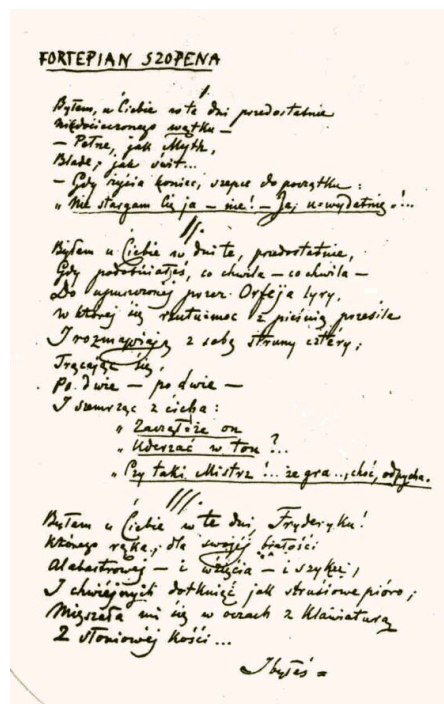 FORTEPIAN SZOPENA
I.
Byłem u Ciebie w te dni przedostatnie
Niedocieczonego wątku —
— Pełne, jak Myth,
Blade, jak świt...
— Gdy życia koniec, szepce do początku:
„Nie stargam Cię ja — nie! — Ja, u-wydatnię!...
II.
Byłem u Ciebie w dni te, przedostatnie,
Gdy podobniałeś, co chwila — co chwila —
Do upuszczonej przez Orfeja lyry,
W której się rzutu-moc z pieśnią przesila
I rozmawiają z sobą struny cztéry,
Trącając się,
Po dwie — po dwie —
I szemrząc z cicha:
„Zacząłże on
„Uderzać w ton?...
„Czy taki Mistrz!... że gra..., choć, odpycha.
III.
Byłem u Ciebie w te dni, Fryderyku!
Którego ręka, dla swojej białości
Alabastrowej — i wzięcia — i szyku,
I chwiejnych dotknięć jak strusiowe pióro,
Mięszała mi się w oczach z klawiaturą
Z słoniowej kości...
I byłeś =